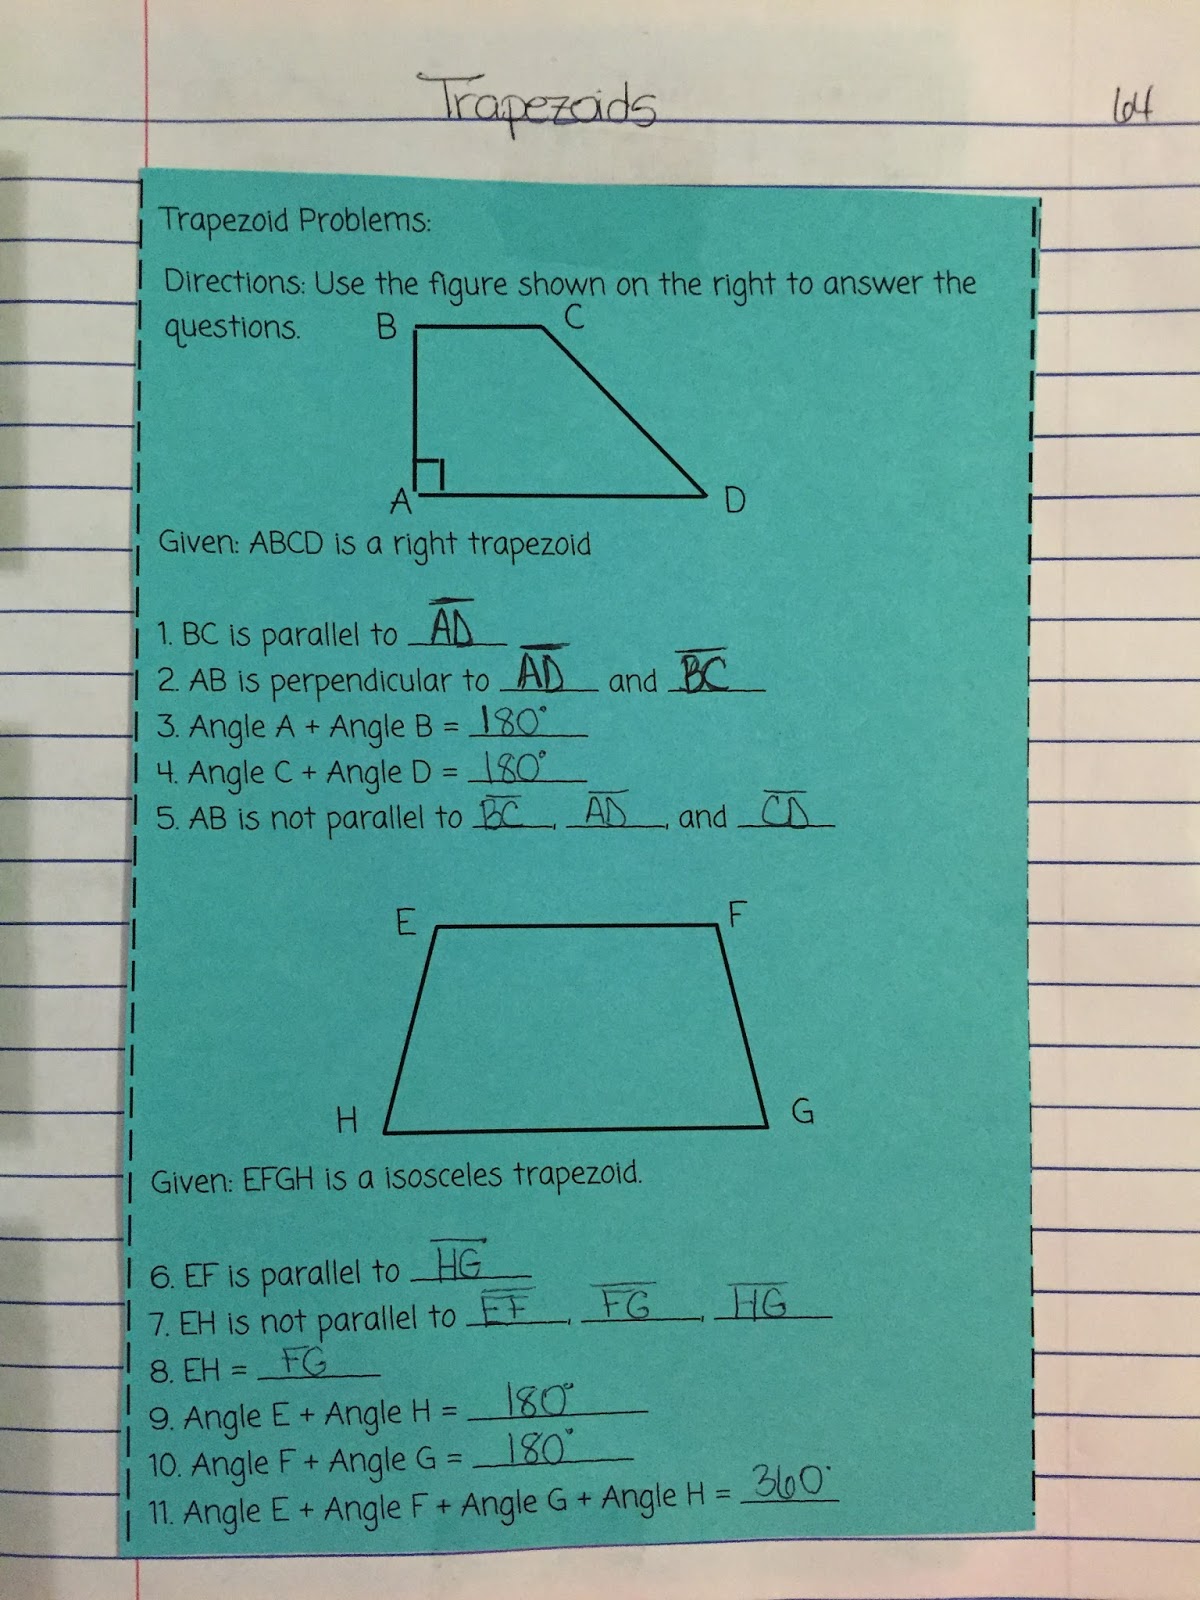 Trapezoids
64
Trapezoid Problems:
Directions: Use the figure shown on the right to answer the
questions.
B
C
A
D
Given: ABCD is a right trapezoid
1. BC is parallel to AD
2. AB is perpendicular to AD and BC
3. Angle A + Angle B = 180°
4. Angle C + Angle D = 180°
5. AB is not parallel to BC, AD, and CD
E
F
H
G
Given: EFGH is a isosceles trapezoid.
6. EF is parallel to HG
7. EH is not parallel to EF, FG, HG
8. EH = FG
9. Angle E + Angle H = 180°
10. Angle F + Angle G = 180°
11. Angle E + Angle F + Angle G + Angle H = 360°